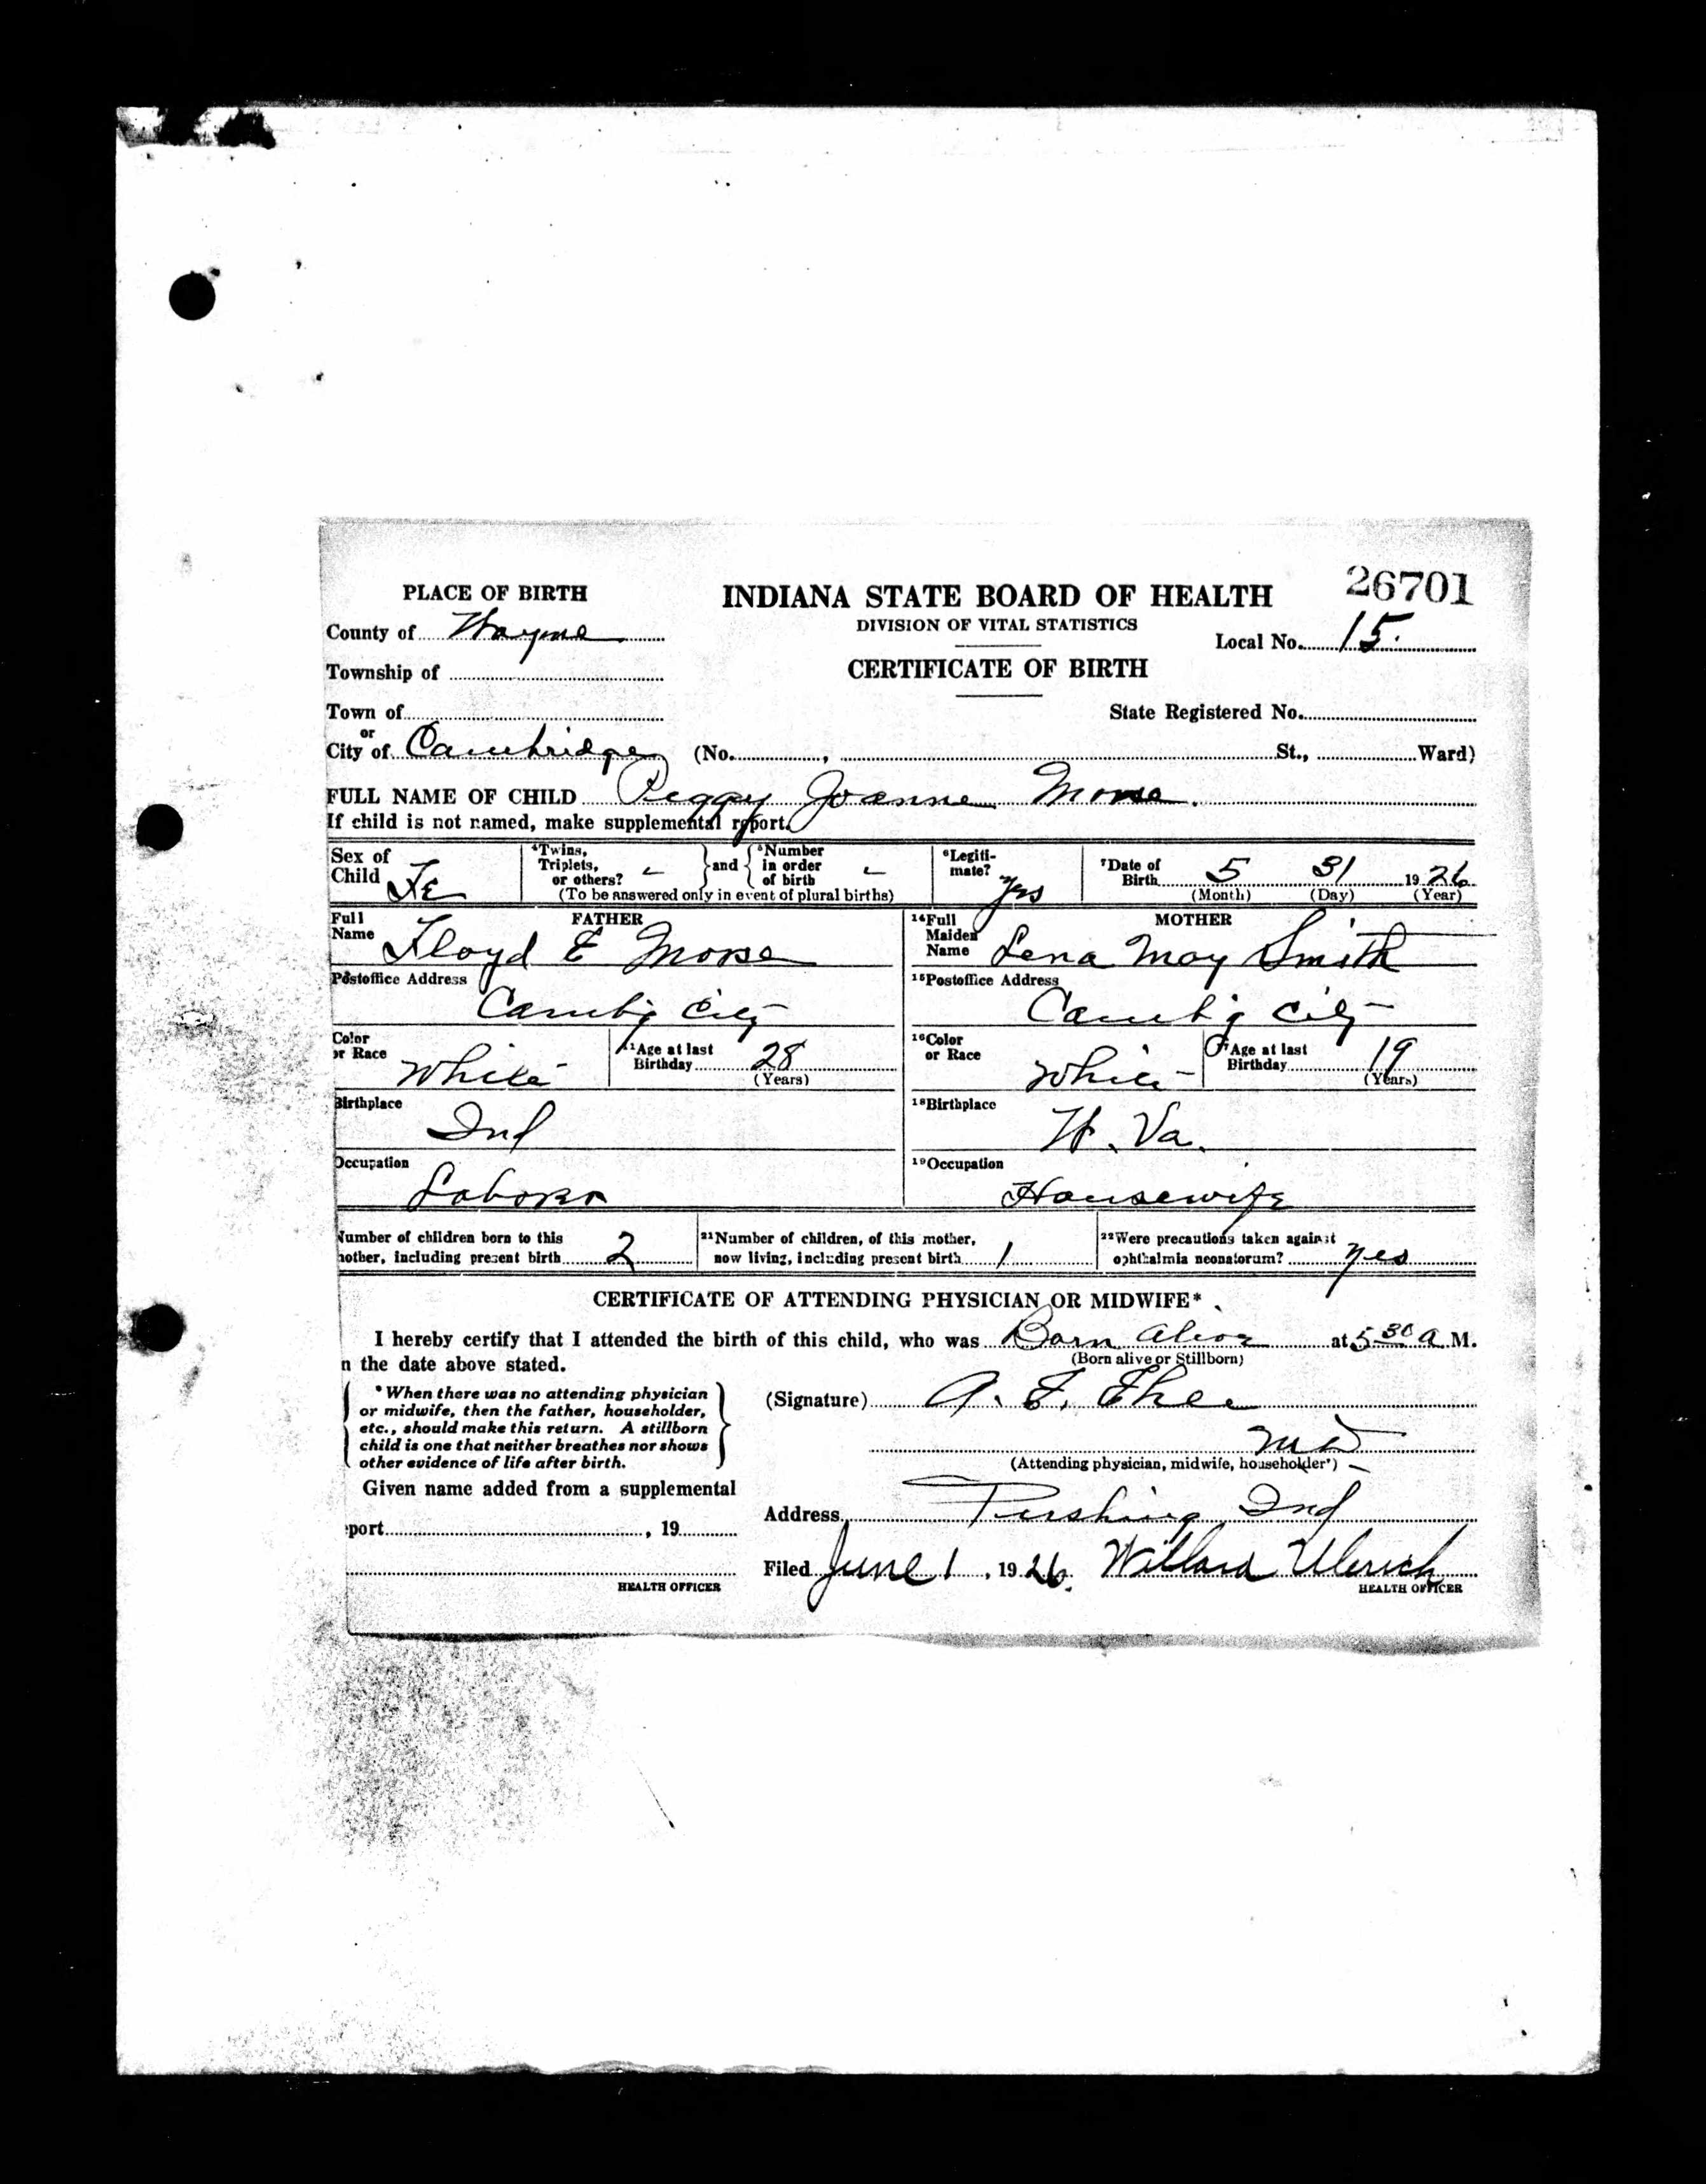 26701
PLACE OF BIRTH
INDIANA STATE BOARD OF HEALTH
DIVISION OF VITAL STATISTICS
CERTIFICATE OF BIRTH
County of Wayne
Local No. 15.
Township of
Town of
State Registered No.
or
City of Cambridge (No. , St., Ward)
FULL NAME OF CHILD Peggy Joanne Morse.
If child is not named, make supplemental report.
Sex of Child Fe
4Twins, Triplets, or others? – and 5Number in order of birth –
(To be answered only in event of plural births)
6Legitimate? yes
7Date of Birth 5 31 1926
(Month) (Day) (Year)
FATHER
Full Name Floyd E Morse
Postoffice Address
Cambg City
Color or Race White
11Age at last Birthday 28
(Years)
Birthplace
Ind
Occupation
Laborer
MOTHER
14Full Maiden Name Lena May Smith
15Postoffice Address
Cambg City
16Color or Race White
17Age at last Birthday 19
(Years)
18Birthplace
W. Va.
19Occupation
Housewife
Number of children born to this
mother, including present birth 2
21Number of children, of this mother,
now living, including present birth 1
22Were precautions taken against
ophthalmia neonatorum? yes
CERTIFICATE OF ATTENDING PHYSICIAN OR MIDWIFE*
I hereby certify that I attended the birth of this child, who was Born Alive at 5 30 a M.
n the date above stated.
(Born alive or Stillborn)
*When there was no attending physician
or midwife, then the father, householder,
etc., should make this return. A stillborn
child is one that neither breathes nor shows
other evidence of life after birth.
(Signature) A. F.
MD
(Attending physician, midwife, householder*)
Given name added from a supplemental
port , 19
HEALTH OFFICER
Address Pershing Ind
Filed June 1, 1926. Willard Ulerich
HEALTH OFFICER